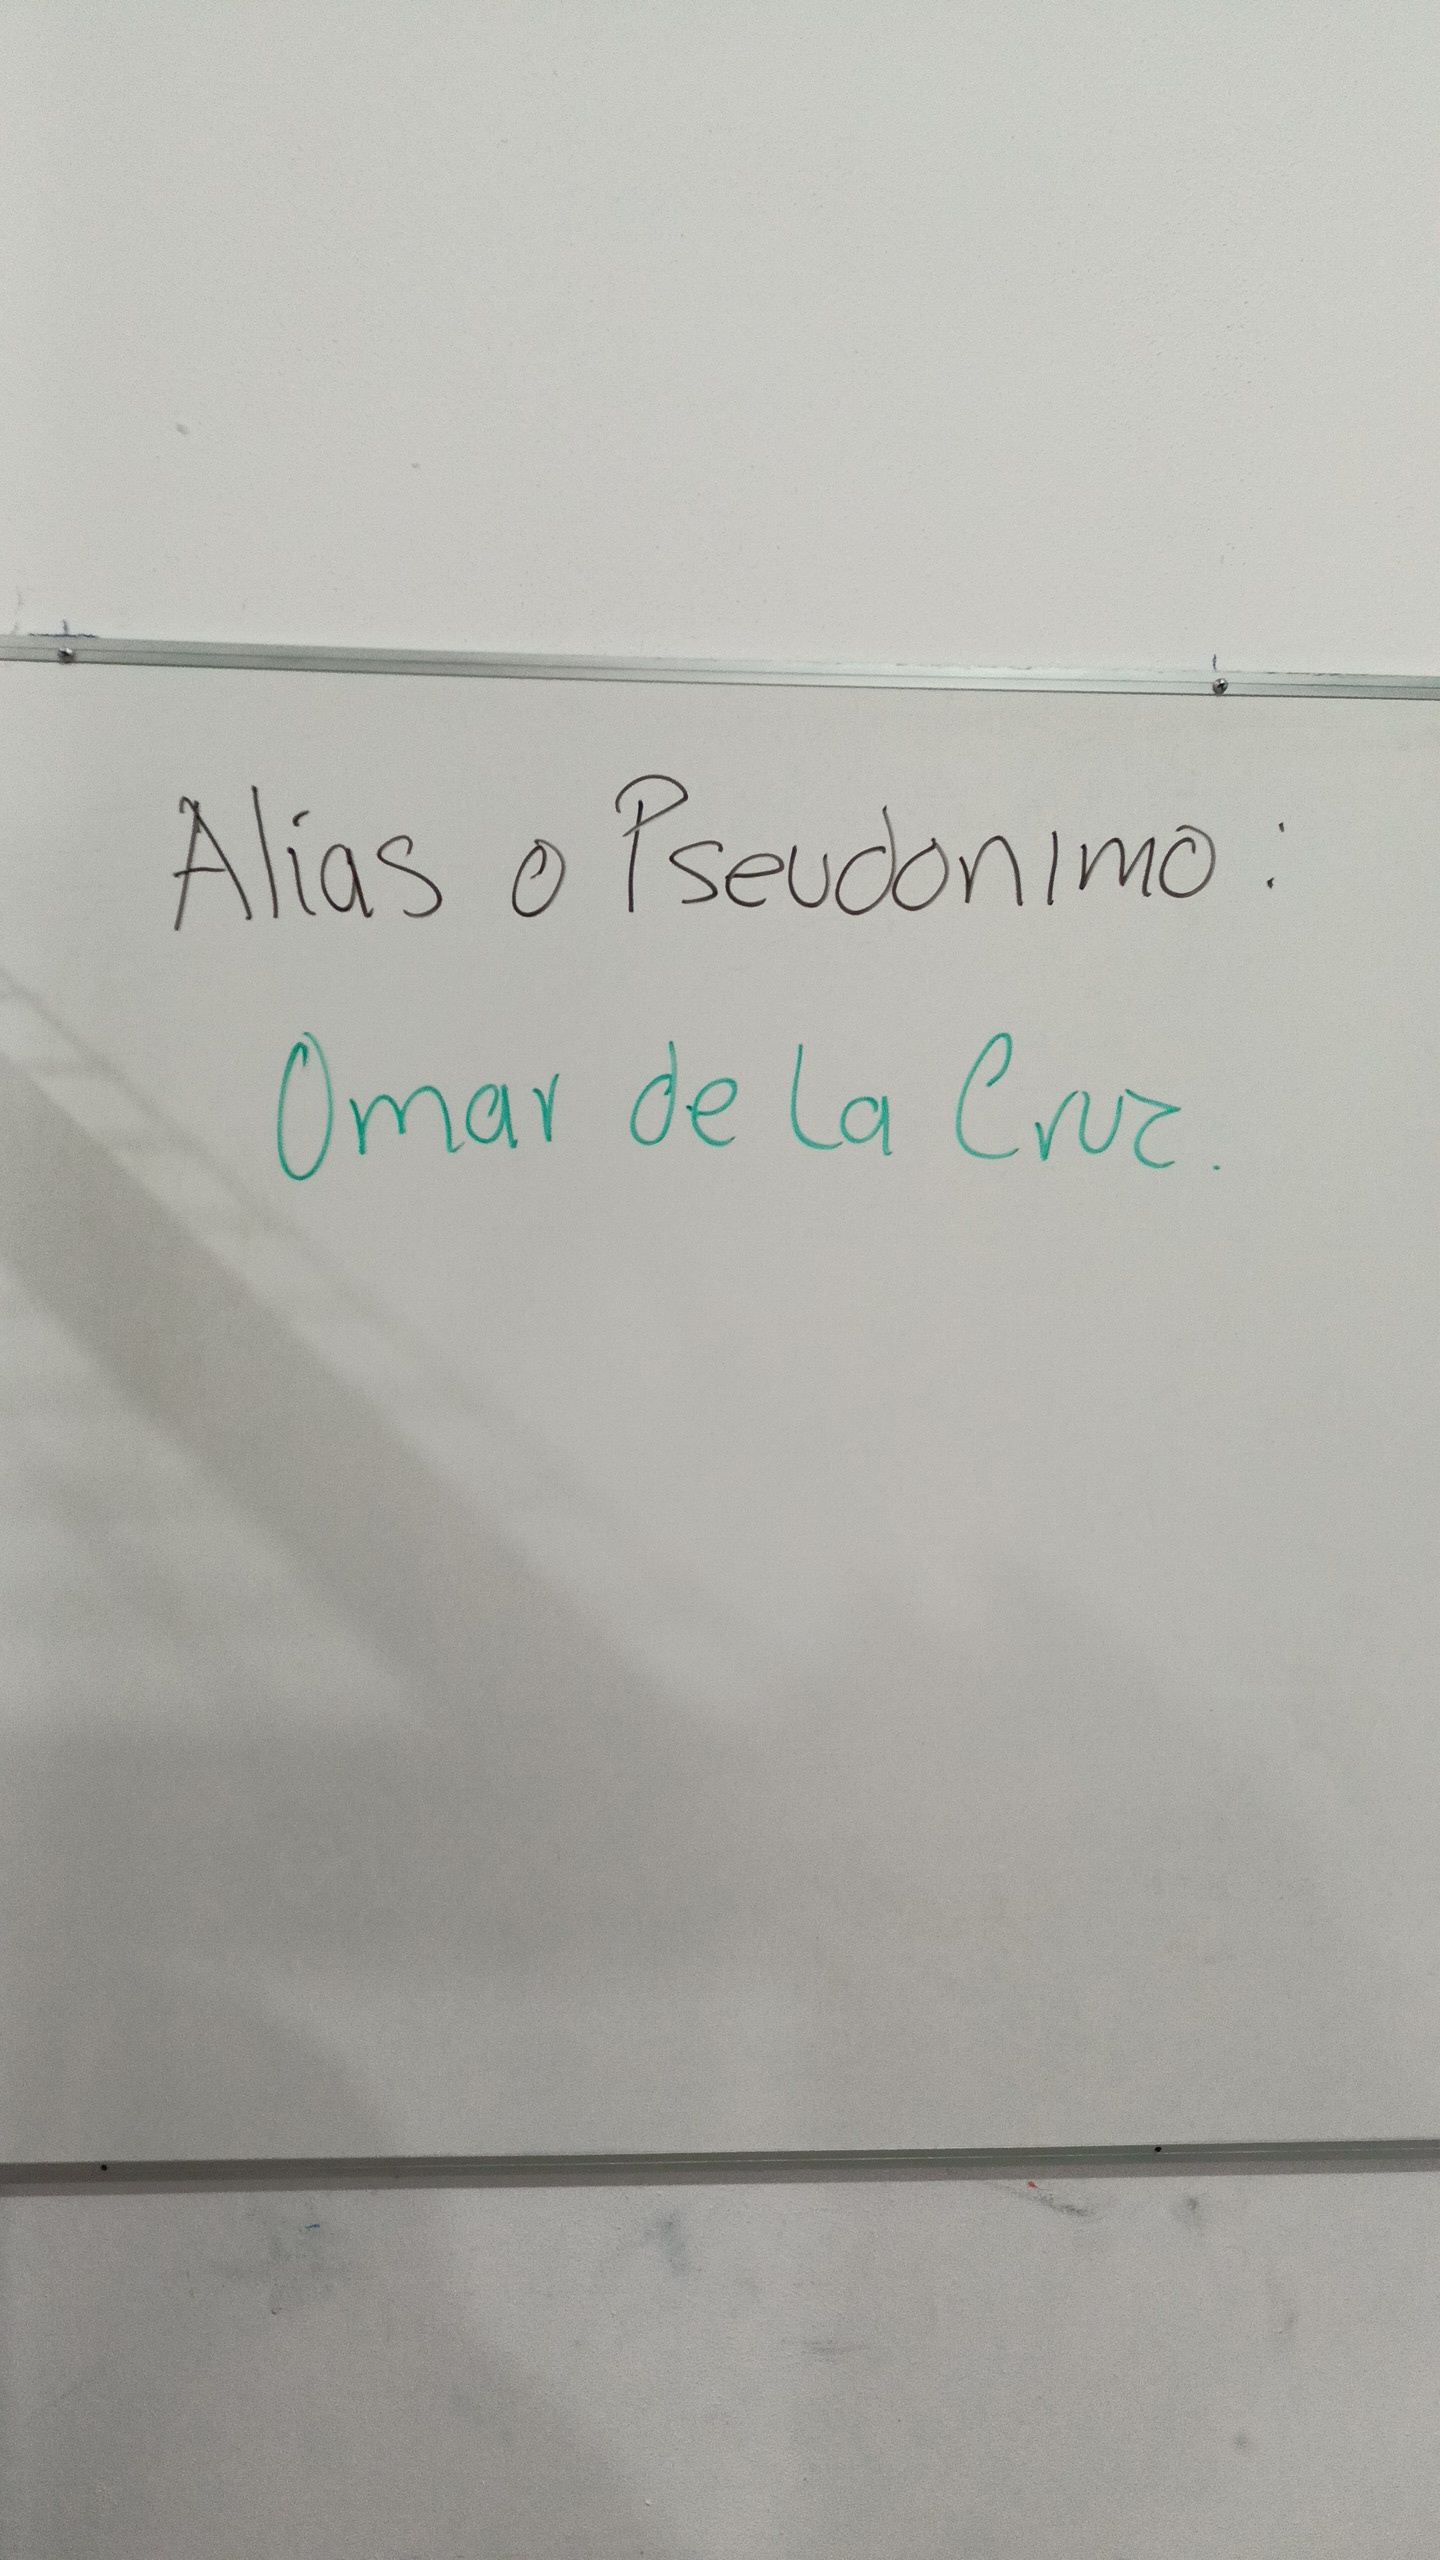 Alias o Pseudonimo:
Omar de La Cruz.